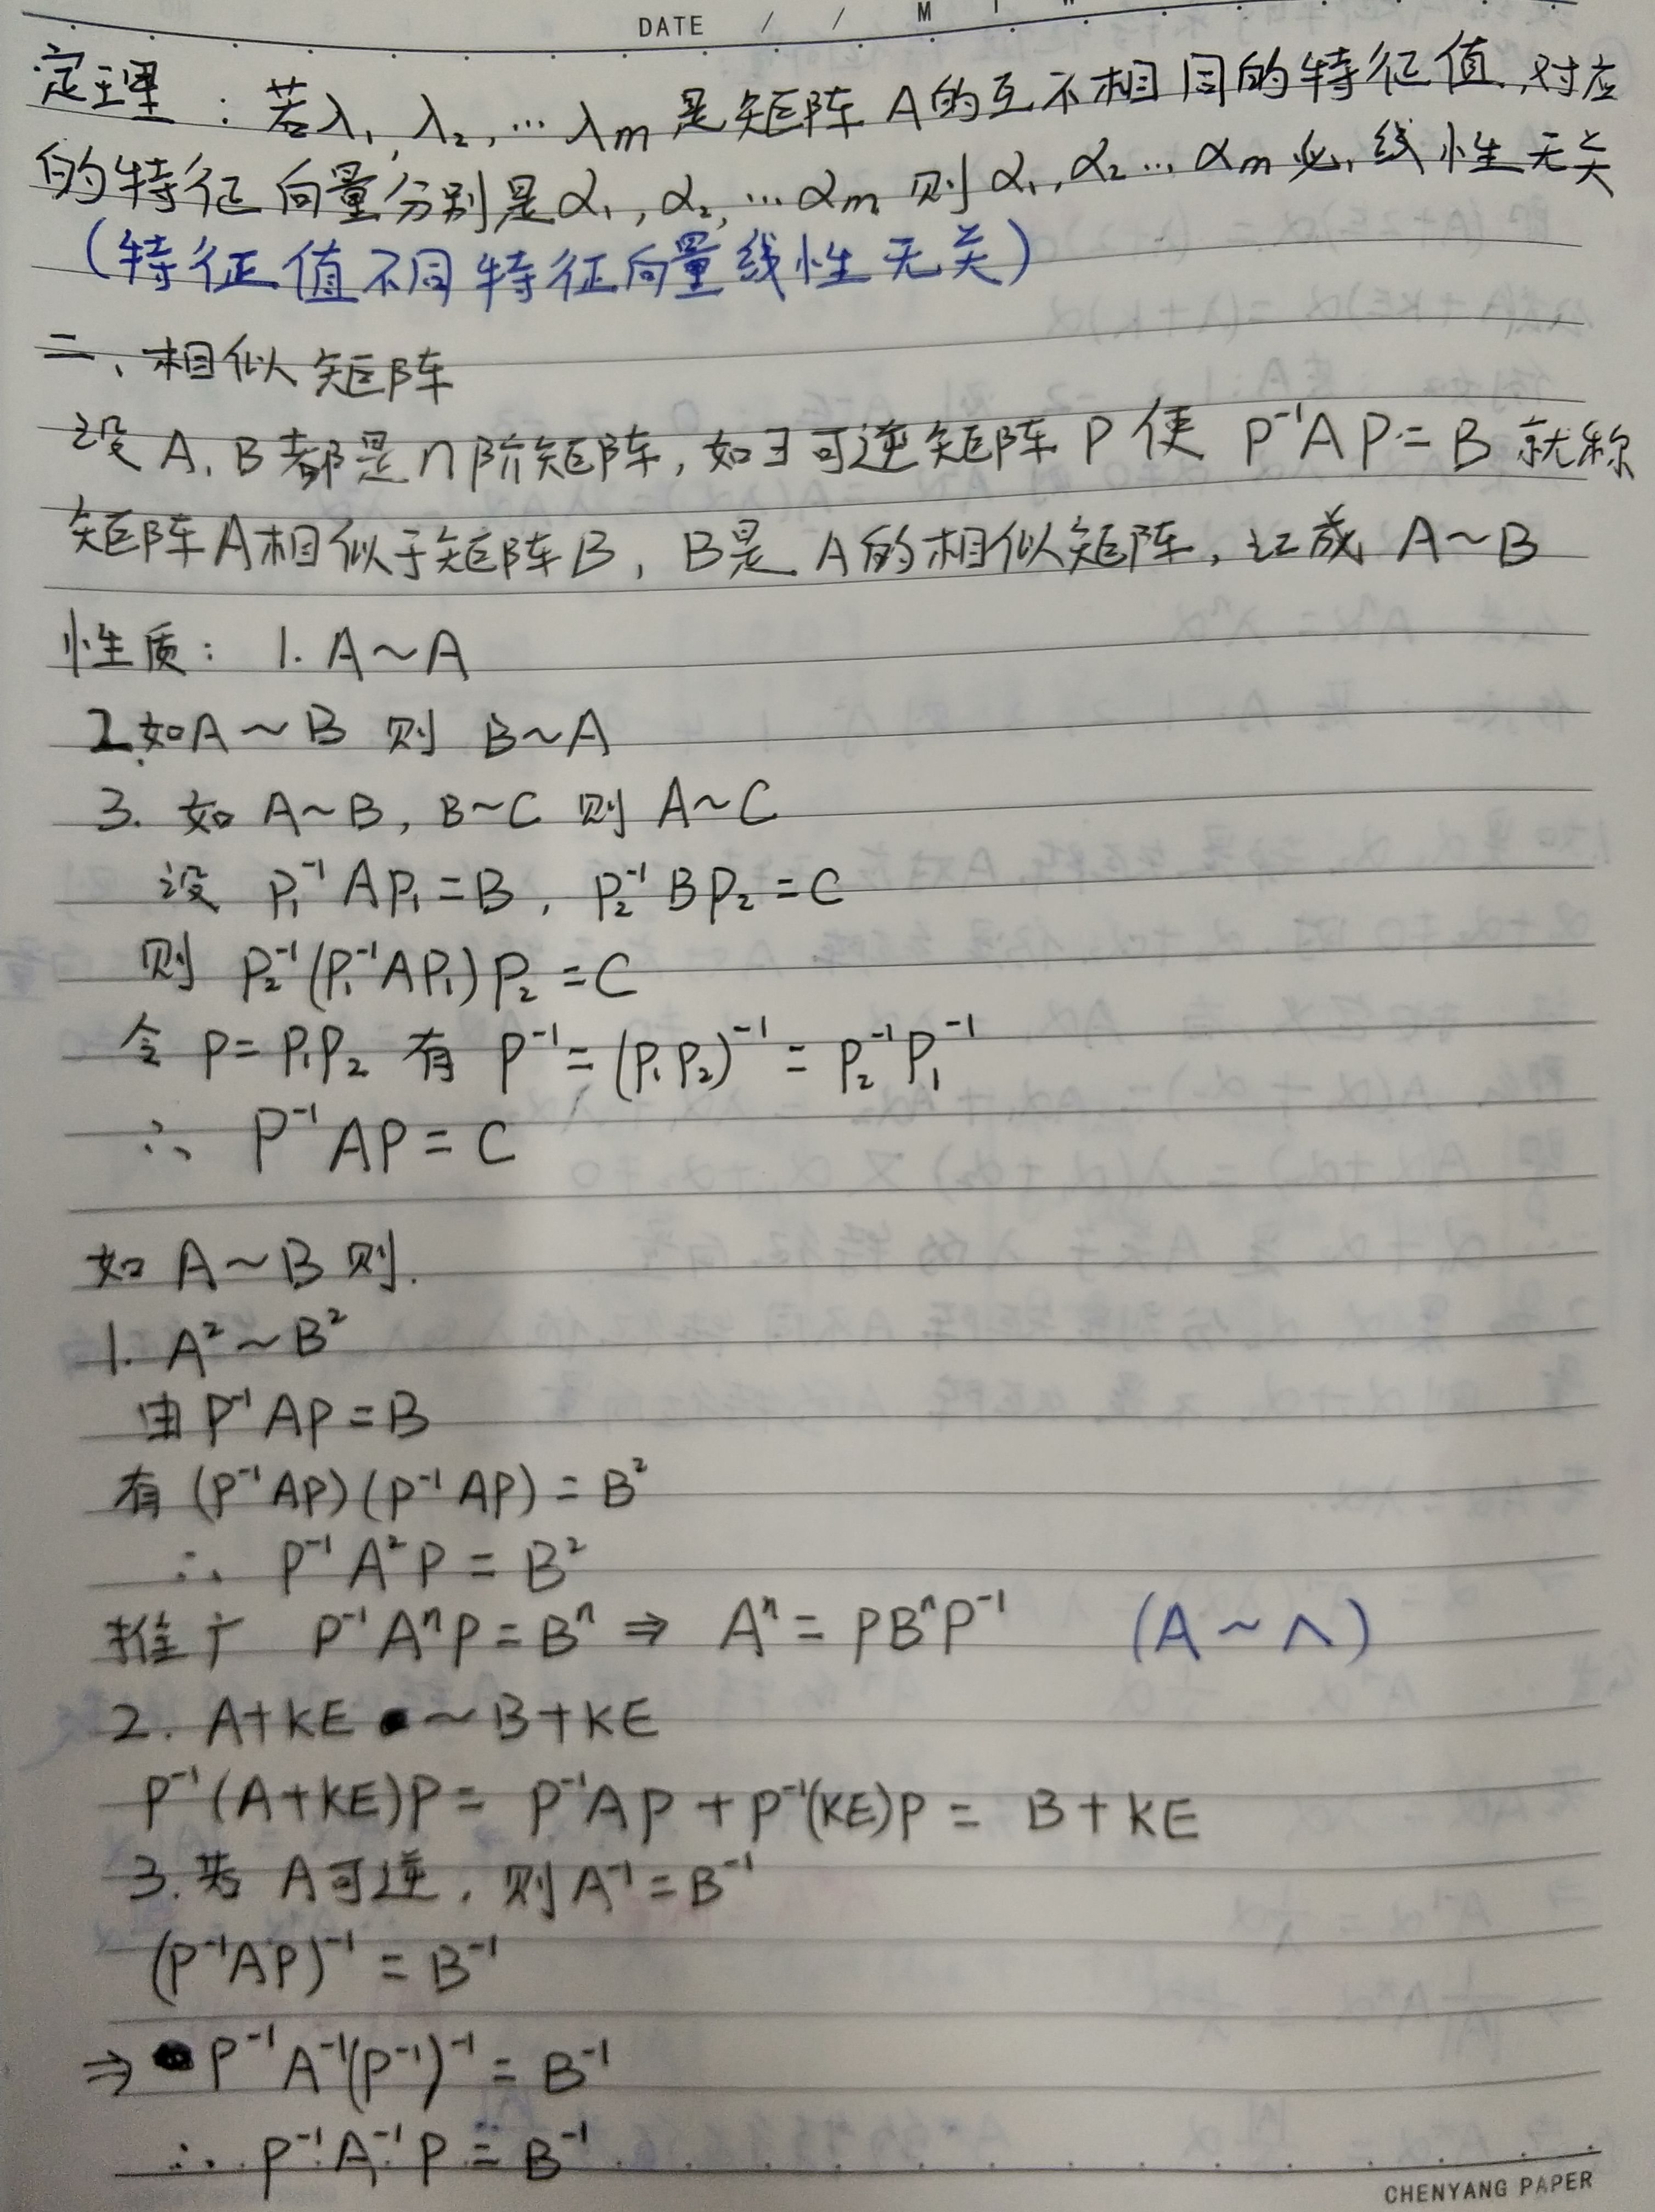 DATE / / M T W
定理：若λ₁, λ₂, … λm 是矩阵 A 的互不相同的特征值, 对应
的特征向量分别是α₁, α₂, … αm 则 α₁, α₂ … αm 必线性无关
（特征值不同特征向量线性无关）
二、相似矩阵
设 A, B 都是 n 阶矩阵, 如∃可逆矩阵 P 使 P⁻¹AP = B 就称
矩阵A相似于矩阵B, B是 A的相似矩阵, 记成 A～B
性质： 1. A～A
2. 如A～B 则 B～A
3. 如 A～B, B～C 则 A～C
设 P₁⁻¹AP₁ = B, P₂⁻¹BP₂ = C
则 P₂⁻¹(P₁⁻¹AP₁)P₂ = C
令 P = P₁P₂ 有 P⁻¹ = (P₁P₂)⁻¹ = P₂⁻¹P₁⁻¹
∴ P⁻¹AP = C
如 A～B 则.
1. A²～B²
由 P⁻¹AP = B
有 (P⁻¹AP)(P⁻¹AP) = B²
∴ P⁻¹A²P = B²
推广 P⁻¹AⁿP = Bⁿ ⇒ Aⁿ = PBⁿP⁻¹ (A～Λ)
2. A+kE ～ B+kE
P⁻¹(A+kE)P = P⁻¹AP + P⁻¹(kE)P = B+kE
3. 若 A可逆, 则A⁻¹ = B⁻¹
(P⁻¹AP)⁻¹ = B⁻¹
⇒ P⁻¹A⁻¹(P⁻¹)⁻¹ = B⁻¹
∴ P⁻¹A⁻¹P = B⁻¹
CHENYANG PAPER